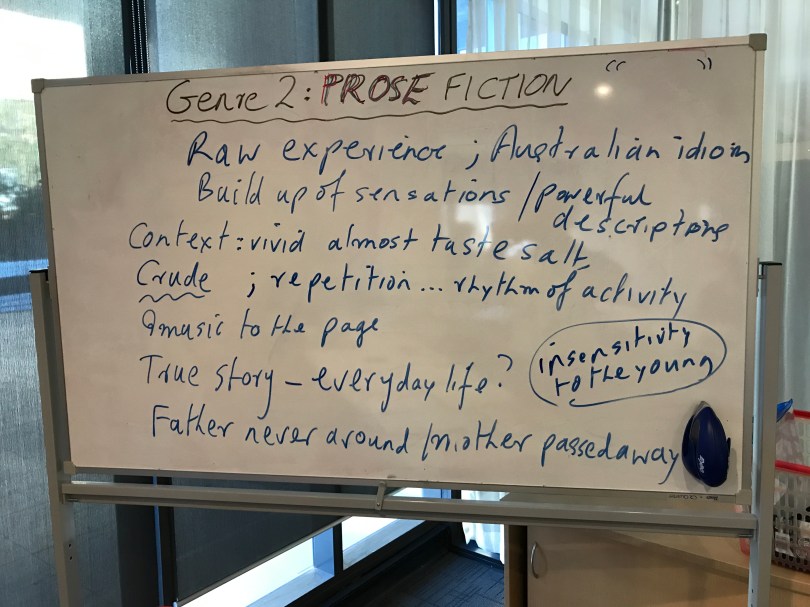 Genre 2: PROSE FICTION “ ”
Raw experience ; Australian idiom
Build up of sensations / powerful
descriptions
Context: vivid almost taste salt
Crude ; repetition... rhythm of activity
music to the page
True story – everyday life?
insensitivity
to the young
Father never around / mother passed away